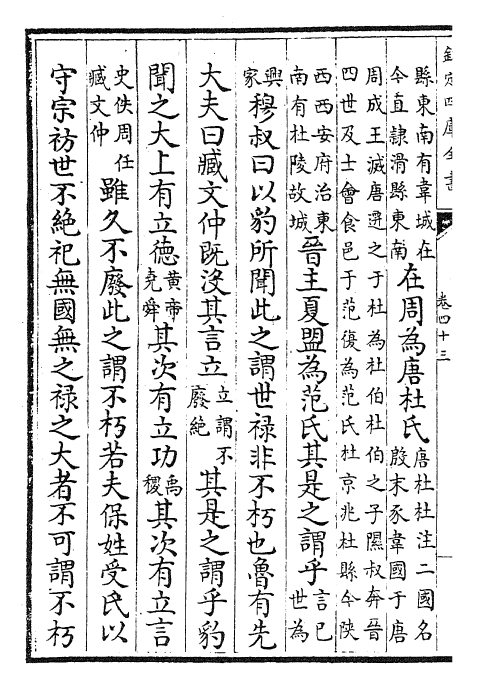 欽定四庫全書
卷四十三
縣東南有韋城在
今直隸滑縣東南
在周為唐杜氏
唐杜杜注二國名
殷末豕韋國于唐
周成王滅唐遷之于杜為杜伯杜伯之子隰叔奔晉
四世及士會食邑于范復為范氏杜京兆杜縣今陝
西西安府治東
南有杜陵故城
晉主夏盟為范氏其是之謂乎
言已
世為
興
家
穆叔曰以豹所聞此之謂世禄非不朽也魯有先
大夫曰臧文仲既沒其言立
立謂不
廢絕
其是之謂乎豹
聞之大上有立德
黄帝
堯舜
其次有立功
禹
稷
其次有立言
史佚周任
臧文仲
雖久不廢此之謂不朽若夫保姓受氏以
守宗祊世不絕祀無國無之禄之大者不可謂不朽